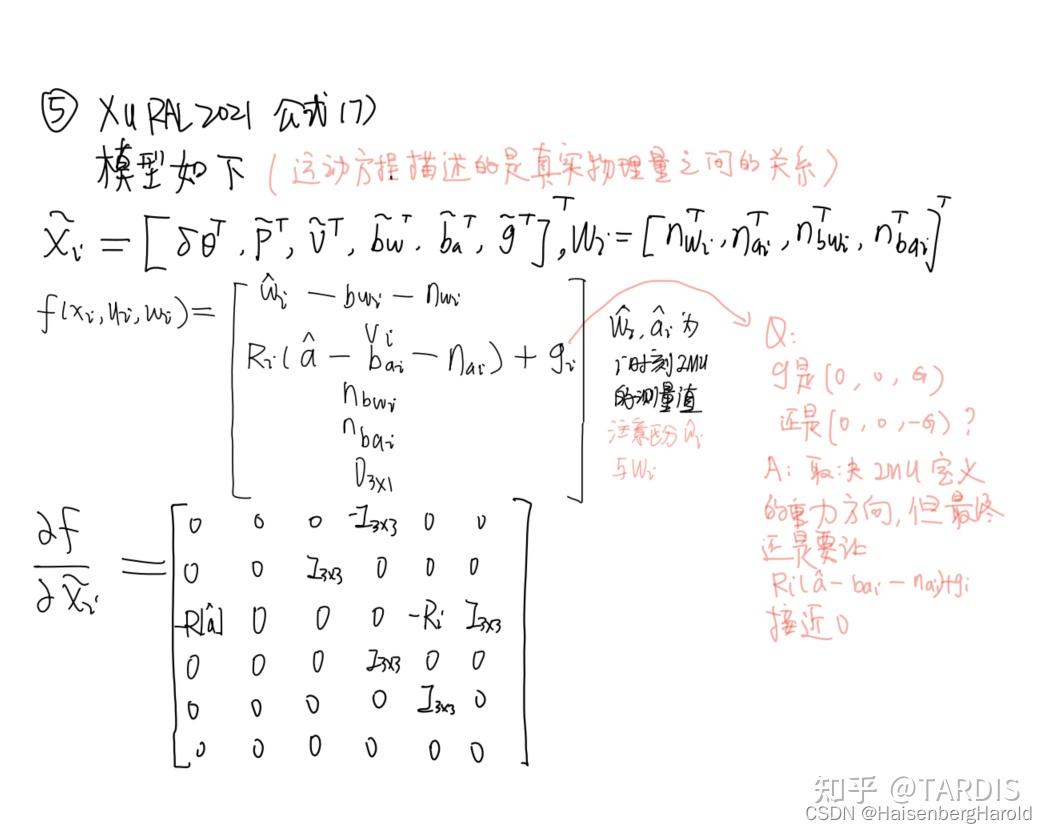 ⑤ XU RAL2021 公式(7)
模型如下 (运动方程描述的是真实物理量之间的关系)
x̃ᵢ = [δθᵀ, p̃ᵀ, ṽᵀ, b̃wᵀ, b̃aᵀ, g̃ᵀ]ᵀ, wᵢ = [nᵀwᵢ, nᵀaᵢ, nᵀbwᵢ, nᵀbaᵢ]ᵀ
f(xᵢ,uᵢ,wᵢ)=
ŵᵢ − bwᵢ − nwᵢ
vᵢ
Rᵢ(â − baᵢ − naᵢ) + gᵢ
nbwᵢ
nbaᵢ
0₃ₓ₁
ŵᵢ, âᵢ 为
i时刻IMU
的测量值
注意区分ŵᵢ
与wᵢ
Q:
g是(0, 0, G)
还是(0, 0, -G)?
A: 取决IMU定义
的重力方向,但最终
还是要让
Rᵢ(â − baᵢ − naᵢ)+gᵢ
接近0
∂f/∂x̃ᵢ =
0 0 0 -I₃ₓ₃ 0 0
0 0 I₃ₓ₃ 0 0 0
-R[â] 0 0 0 -Rᵢ I₃ₓ₃
0 0 0 I₃ₓ₃ 0 0
0 0 0 0 I₃ₓ₃ 0
0 0 0 0 0 0
知乎 @TARDIS
CSDN @HaisenbergHarold